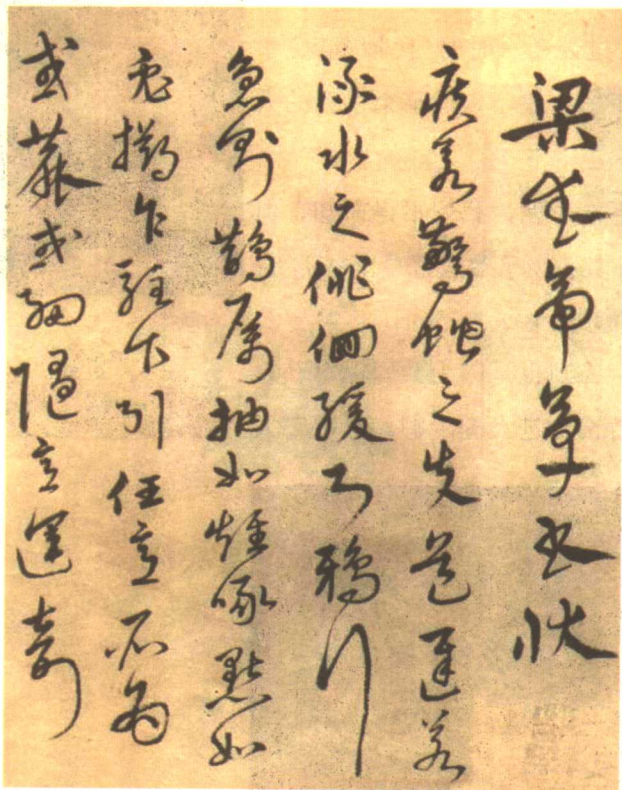 梁武帝草書狀
疾若驚蛇之失道遲若
淥水之徘徊緩則鴉行
急則鵲厲抽如雉啄點如
兔擲乍駐乍引任意所為
或麁或細隨意運奇